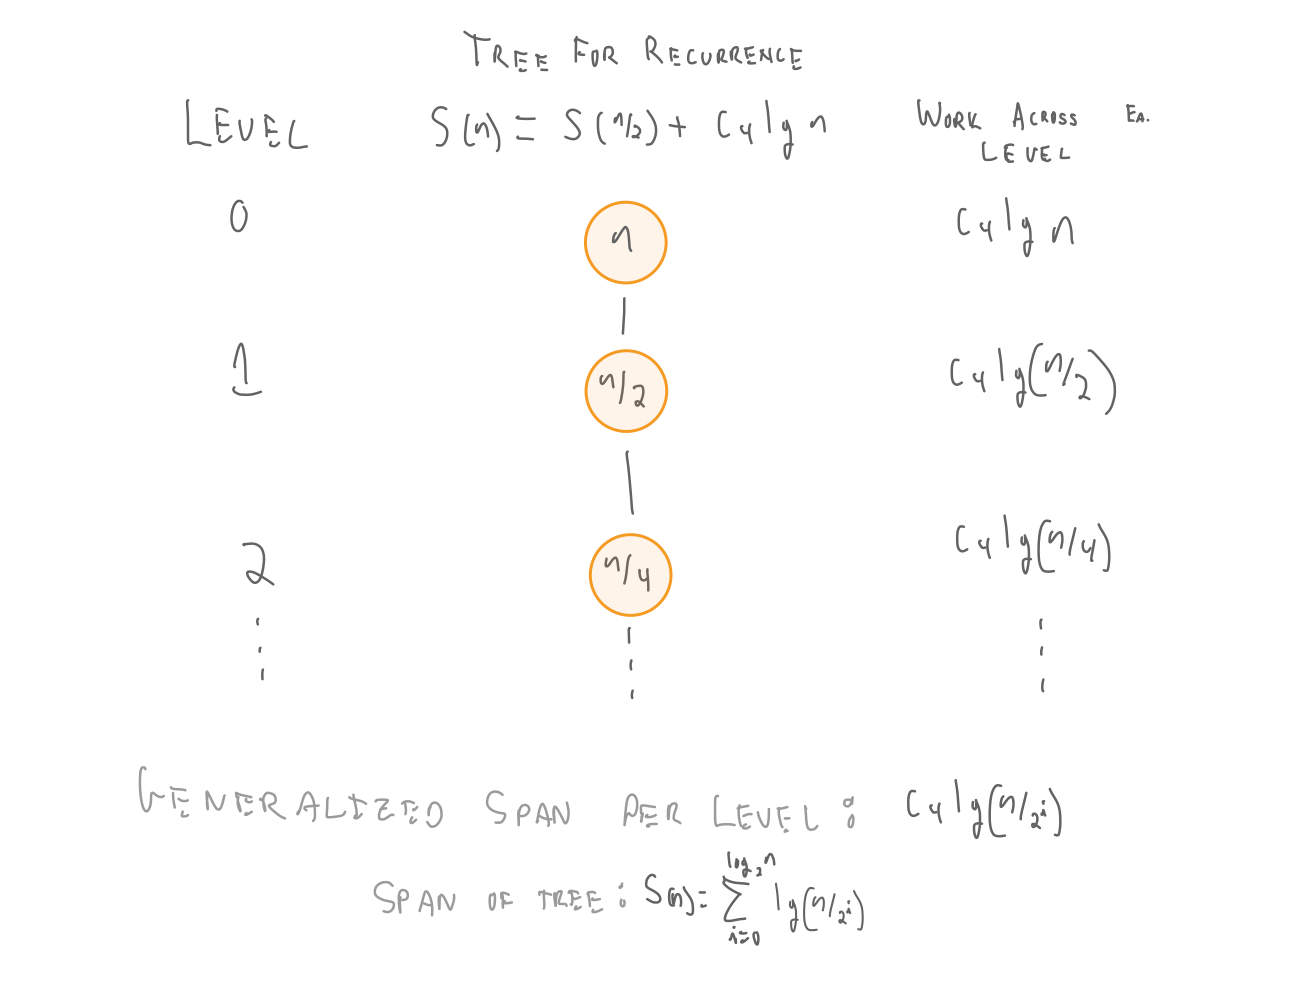 TREE FOR RECURRENCE
LEVEL S(n) = S(n/2) + C₄ lg n WORK ACROSS EA. LEVEL
0 n C₄ lg n
1 n/2 C₄ lg(n/2)
2 n/4 C₄ lg(n/4)
⋮ ⋮ ⋮
GENERALIZED SPAN PER LEVEL: C₄ lg(n/2ⁱ)
SPAN OF TREE: S(n) = ∑_{i=0}^{log₂ n} lg(n/2ⁱ)